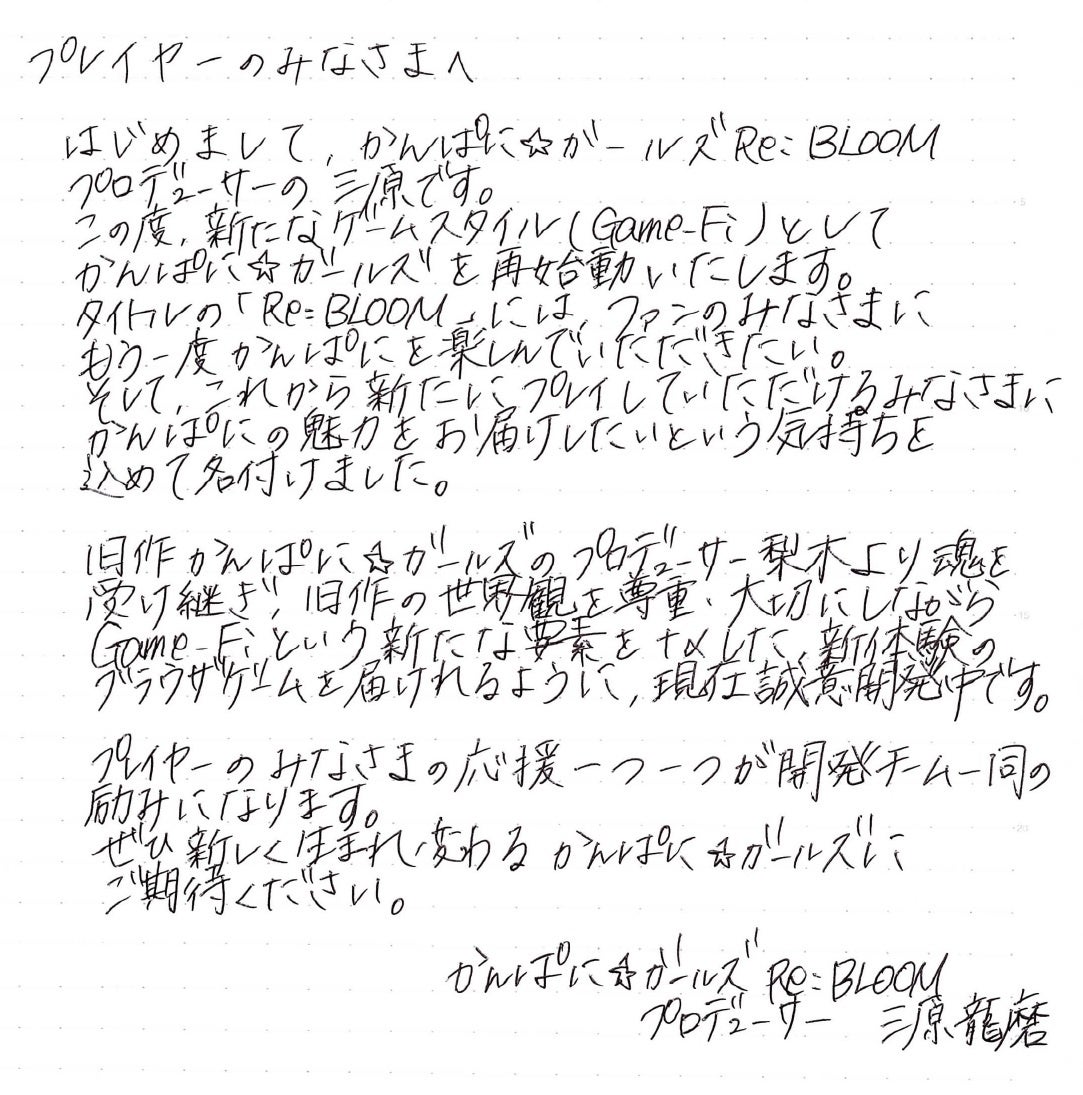 プレイヤーのみなさまへ
はじめまして、かんぱに☆ガールズRe:BLOOM
プロデューサーの三原です。
この度、新たなゲームスタイル(Game-Fi)として
かんぱに☆ガールズを再始動いたします。
タイトルの「Re:BLOOM」には、ファンのみなさまに
もう一度かんぱにを楽しんでいただきたい。
そして、これから新たにプレイしていただけるみなさまに
かんぱにの魅力をお届けしたいという気持ちを
込めて名付けました。
旧作かんぱに☆ガールズのプロデューサー梨木より魂を
受け継ぎ、旧作の世界観を尊重・大切にしながら
Game-Fiという新たな要素をプラスした、新体験の
ブラウザゲームを届けれるように、現在誠意開発中です。
プレイヤーのみなさまの応援一つ一つが開発チーム一同の
励みになります。
ぜひ新しく生まれ変わるかんぱに☆ガールズに
ご期待ください。
かんぱに☆ガールズ Re:BLOOM
プロデューサー 三原龍磨